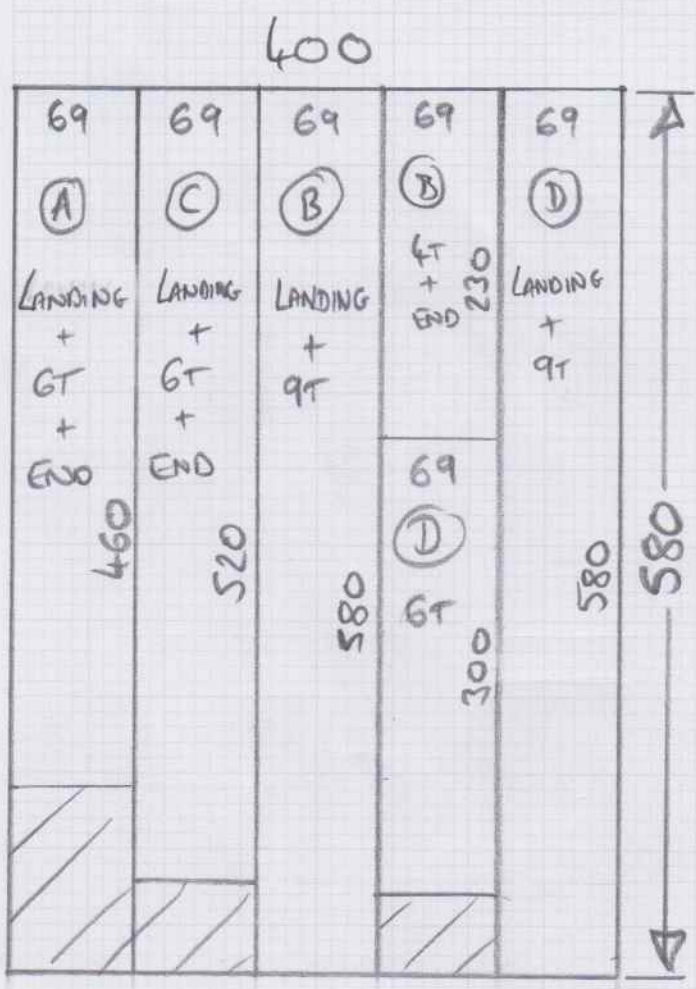 400
69
A
LANDING
+
6T
+
END
460
69
C
LANDING
+
6T
+
END
520
69
B
LANDING
+
9T
580
69
B
4T
+
END
230
69
D
6T
300
69
D
LANDING
+
9T
580
580